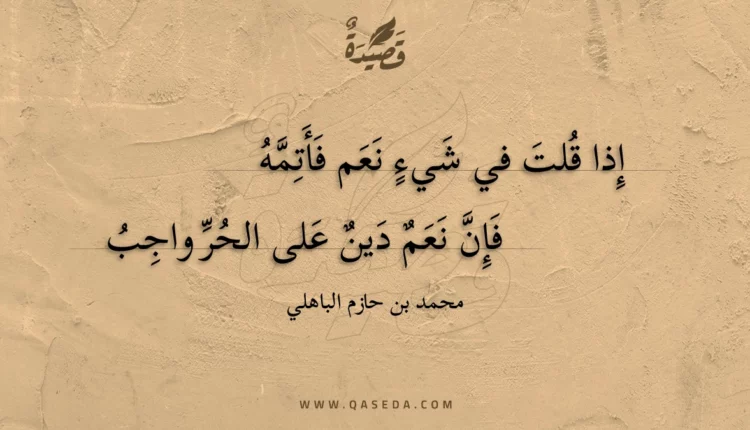 قَصِيْدَةٌ
إِذا قُلتَ في شَيءٍ نَعَم فَأَتِمَّهُ
فَإِنَّ نَعَمٌ دَينٌ عَلى الحُرِّ واجِبُ
محمد بن حازم الباهلي
WWW.QASEDA.COM